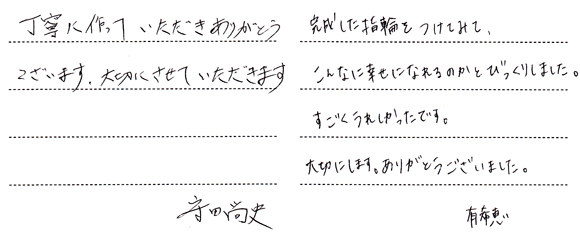 丁寧に作って いただきありがとう
ございます。大切にさせていただきます
守田尚史
完成した指輪をつけてみて、
こんなに幸せになれるのかとびっくりしました。
すごくうれしかったです。
大切にします。ありがとうございました。
有希恵